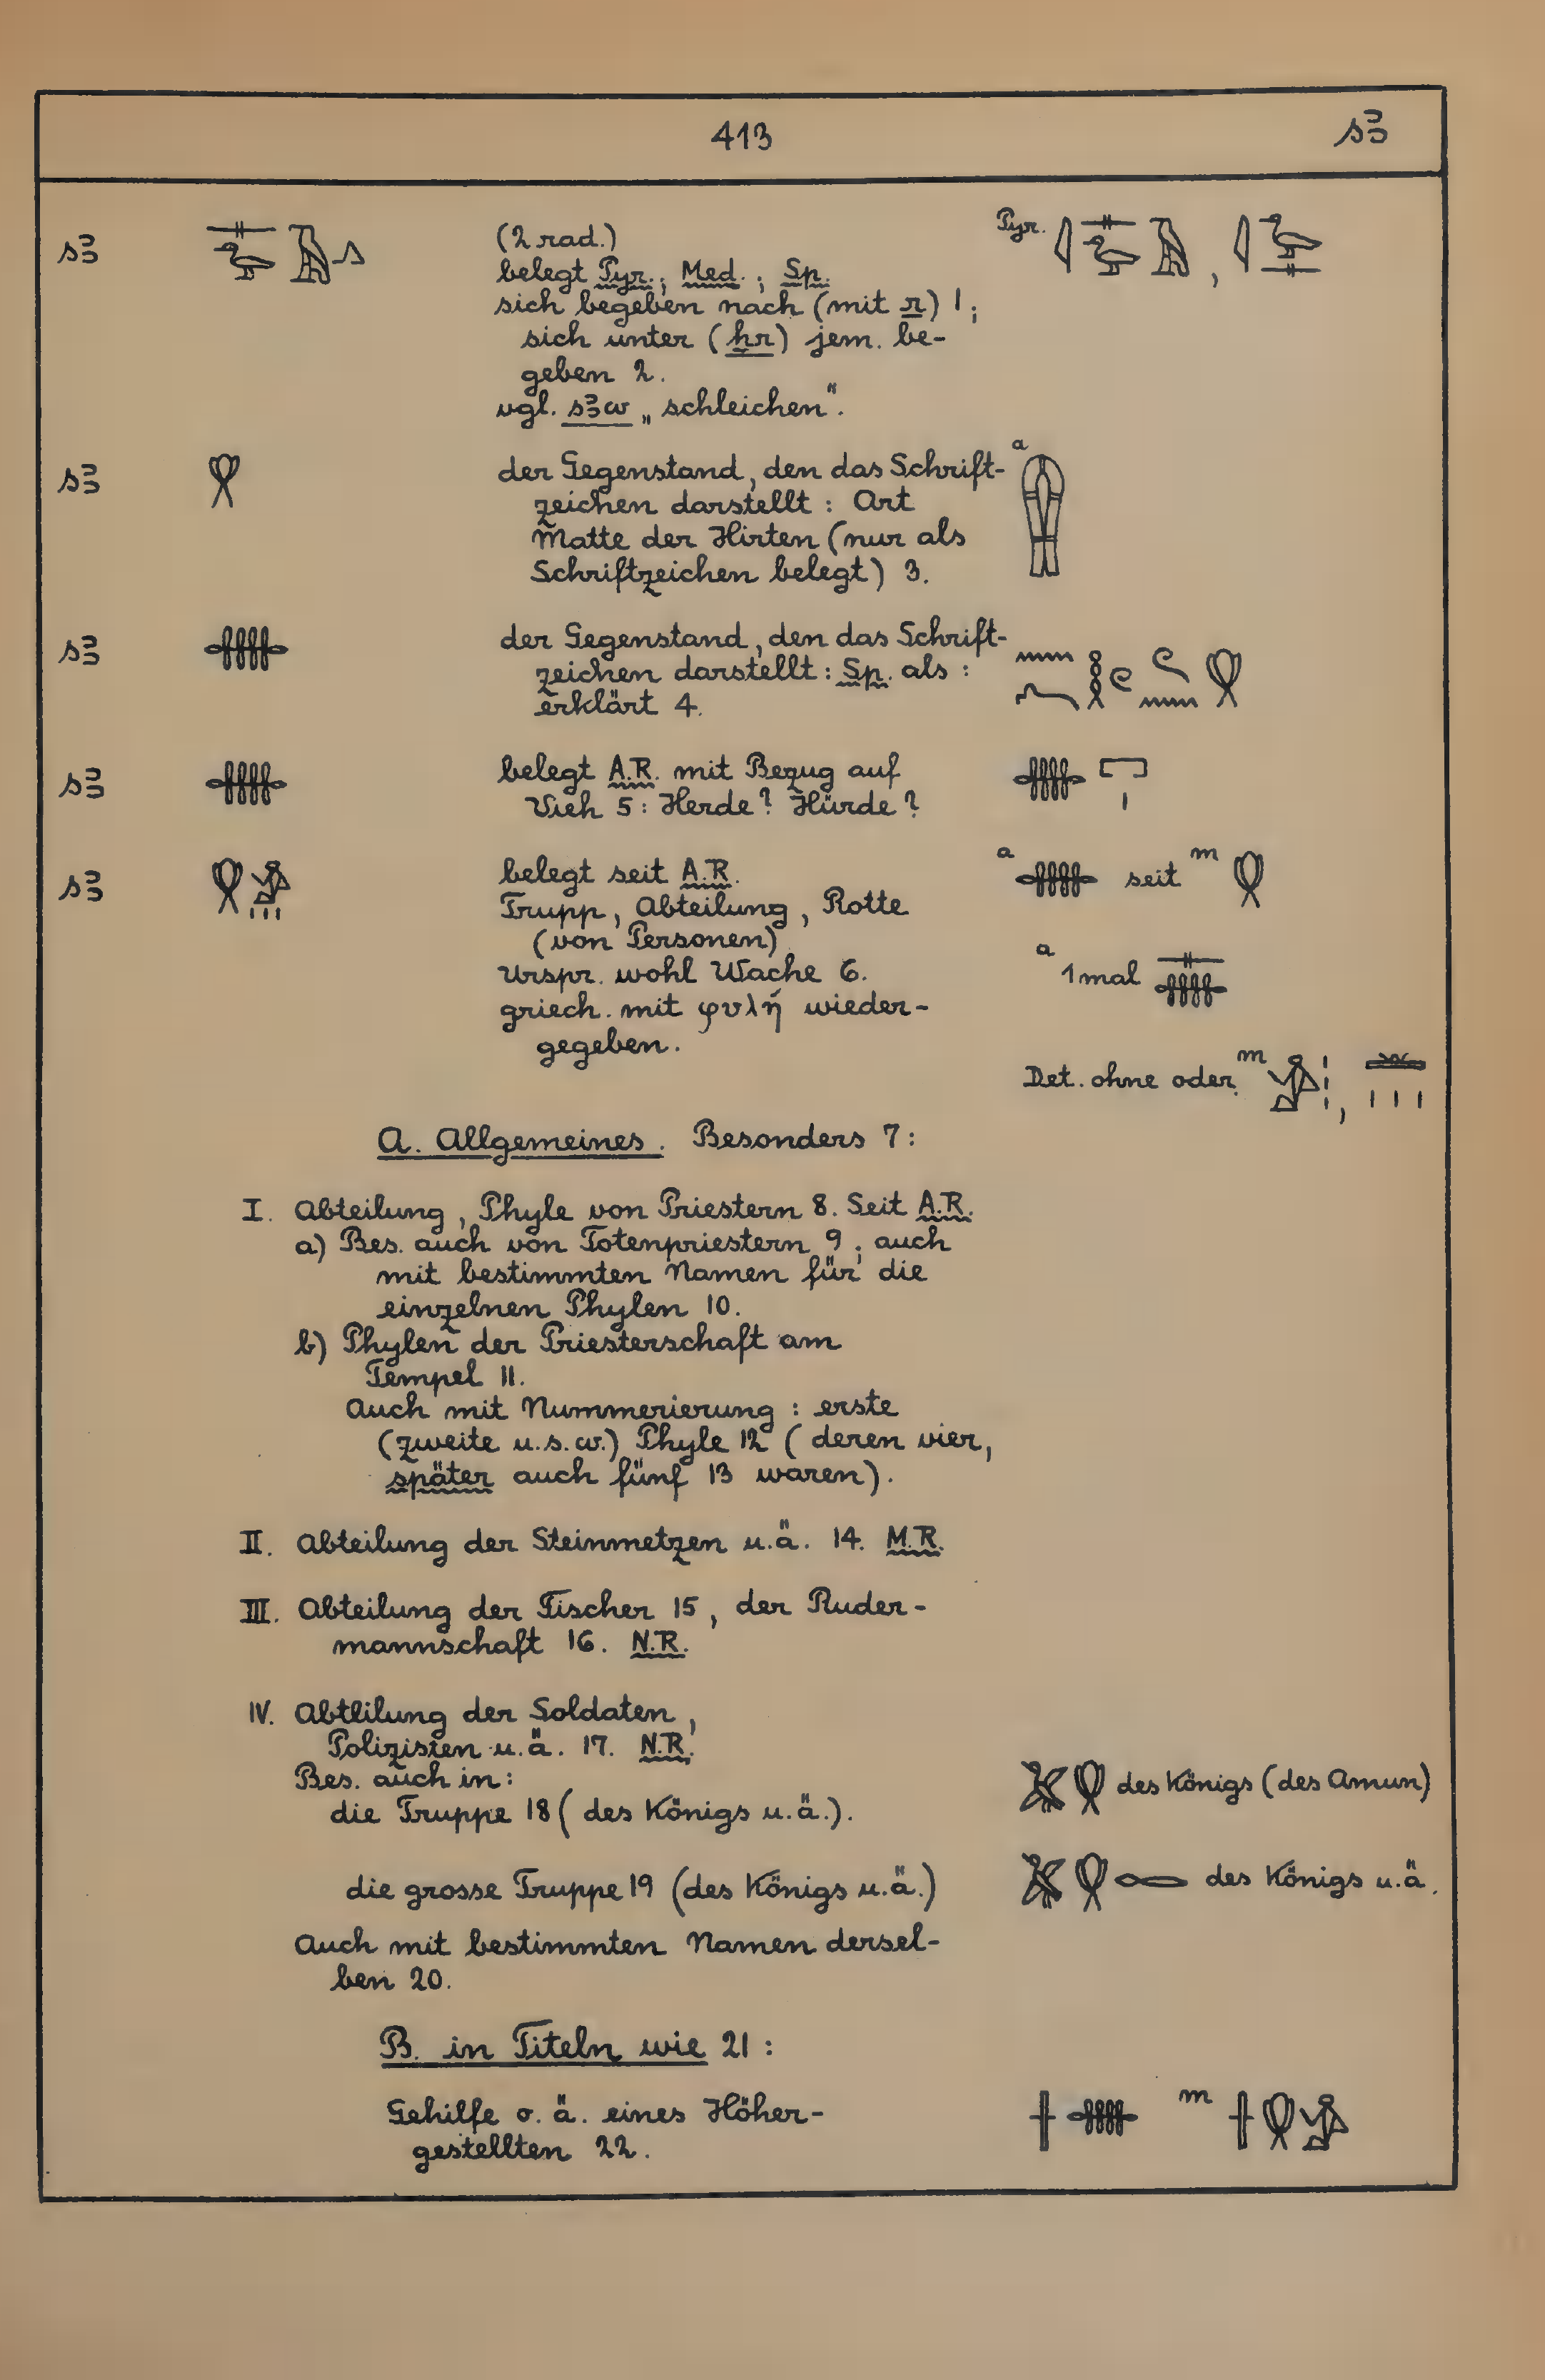 413
sꜣ
sꜣ
(2 rad.)
Pyr.
belegt Pyr.; Med.; Sp.
sich begeben nach (mit r) 1;
sich unter (ẖr) jem. be-
geben 2.
vgl. sꜣw „schleichen".
sꜣ
der Gegenstand, den das Schrift-
a
zeichen darstellt: Art
Matte der Hirten (nur als
Schriftzeichen belegt) 3.
sꜣ
der Gegenstand, den das Schrift-
zeichen darstellt: Sp. als:
erklärt 4.
sꜣ
belegt A.R. mit Bezug auf
Vieh 5: Herde? Hürde?
sꜣ
belegt seit A.R.
a seit m
Trupp, Abteilung, Rotte
(von Personen)
Urspr. wohl Wache 6.
a 1mal
griech. mit φυλή wieder-
gegeben.
Det. ohne oder m
A. Allgemeines. Besonders 7:
I. Abteilung, Phyle von Priestern 8. Seit A.R.
a) Bes. auch von Totenpriestern 9; auch
mit bestimmten Namen für die
einzelnen Phylen 10.
b) Phylen der Priesterschaft am
Tempel 11.
Auch mit Nummerierung: erste
(zweite u.s.w.) Phyle 12 (deren vier,
später auch fünf 13 waren).
II. Abteilung der Steinmetzen u.ä. 14. M.R.
III. Abteilung der Fischer 15, der Ruder-
mannschaft 16. N.R.
IV. Abteilung der Soldaten,
Polizisten u.ä. 17. N.R.
Bes. auch in:
die Truppe 18 (des Königs u.ä.).
des Königs (des Amun)
die grosse Truppe 19 (des Königs u.ä.)
des Königs u.ä.
Auch mit bestimmten Namen dersel-
ben 20.
B. in Titeln wie 21:
Gehilfe o.ä. eines Höher-
m
gestellten 22.